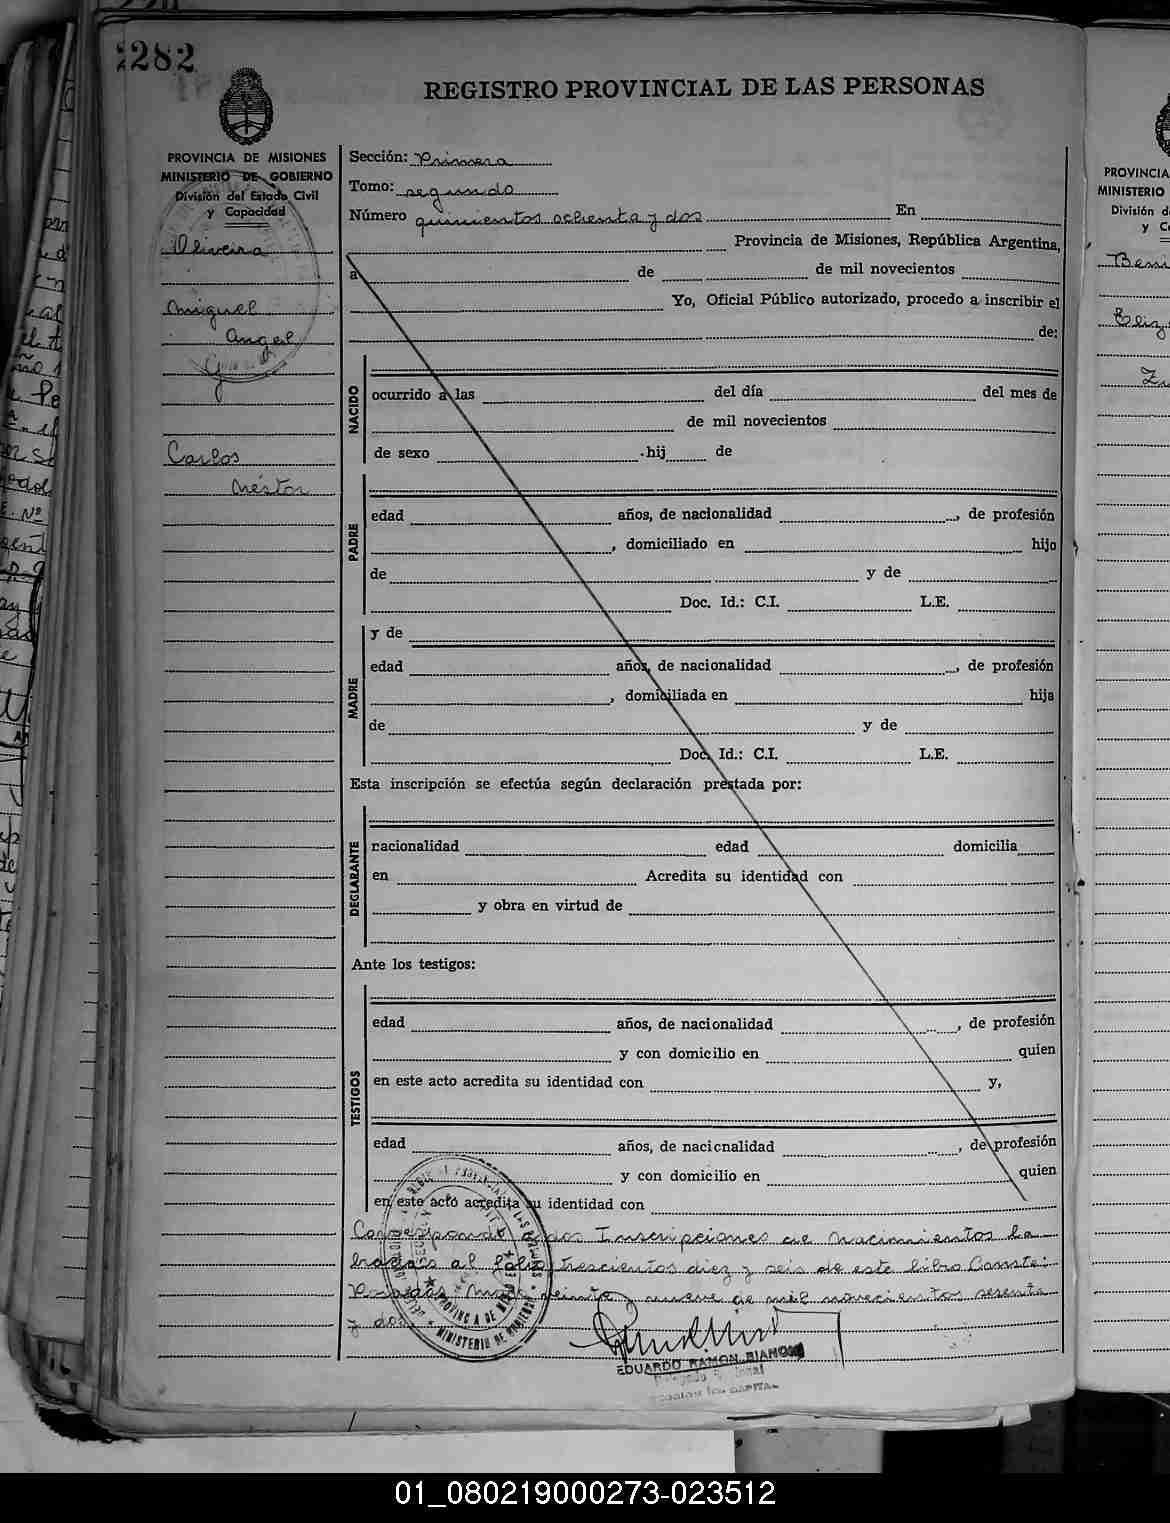 282
REGISTRO PROVINCIAL DE LAS PERSONAS
PROVINCIA DE MISIONES
MINISTERIO DE GOBIERNO
División del Estado Civil
y Capacidad
Oliveira
Miguel
Angel
y
Carlos
Néstor
Sección: Primera
Tomo: segundo
Número quinientos ochenta y dos En
Provincia de Misiones, República Argentina,
a de de mil novecientos
Yo, Oficial Público autorizado, procedo a inscribir el
de:
NACIDO
ocurrido a las del día del mes de
de mil novecientos
de sexo hij de
PADRE
edad años, de nacionalidad , de profesión
, domiciliado en hijo
de y de
Doc. Id.: C.I. L.E.
MADRE
y de
edad años, de nacionalidad , de profesión
, domiciliada en hija
de y de
Doc. Id.: C.I. L.E.
Esta inscripción se efectúa según declaración prestada por:
DECLARANTE
racionalidad edad domicilia
en Acredita su identidad con
y obra en virtud de
Ante los testigos:
TESTIGOS
edad años, de nacionalidad , de profesión
y con domicilio en quien
en este acto acredita su identidad con y,
edad años, de nacionalidad , de profesión
y con domicilio en quien
en este acto acredita su identidad con
Corresponde a dos Inscripciones de Nacimientos la
bradas al folio trescientos diez y seis de este libro Conste:
Posadas, veinte y nueve de mil novecientos sesenta
y dos.
EDUARDO RAMON BIANCHI
PROVINCIA
MINISTERIO
División d
y C
01_080219000273-023512